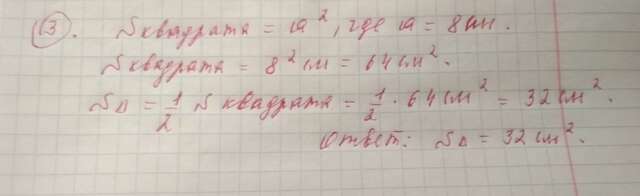 3. S квадрата = a², где a = 8 см.
S квадрата = 8² см = 64 см².
S∆ = 1/2 S квадрата = 1/2 · 64 см² = 32 см².
Ответ: S∆ = 32 см².